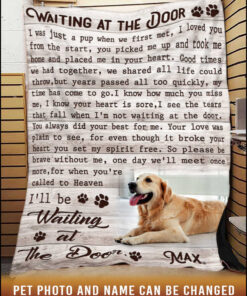 Waiting at the Door
I was just a pup when we first met, I loved you
from the start, you picked me up and took me
home and placed me in your heart. Good times
we had together, we shared all life could
throw, but years passed all too quickly, my
time has come to go. I know how much you miss
me, I know your heart is sore, I see the tears
that fall when I'm not waiting at the door.
You always did your best for me. Your love was
plain to see, for even though it broke your
heart you set my spirit free. So please be
brave without me, one day we'll meet once
more, for when you're
called to Heaven
I'll be
Waiting
at
the Door
MAX
PET PHOTO AND NAME CAN BE CHANGED